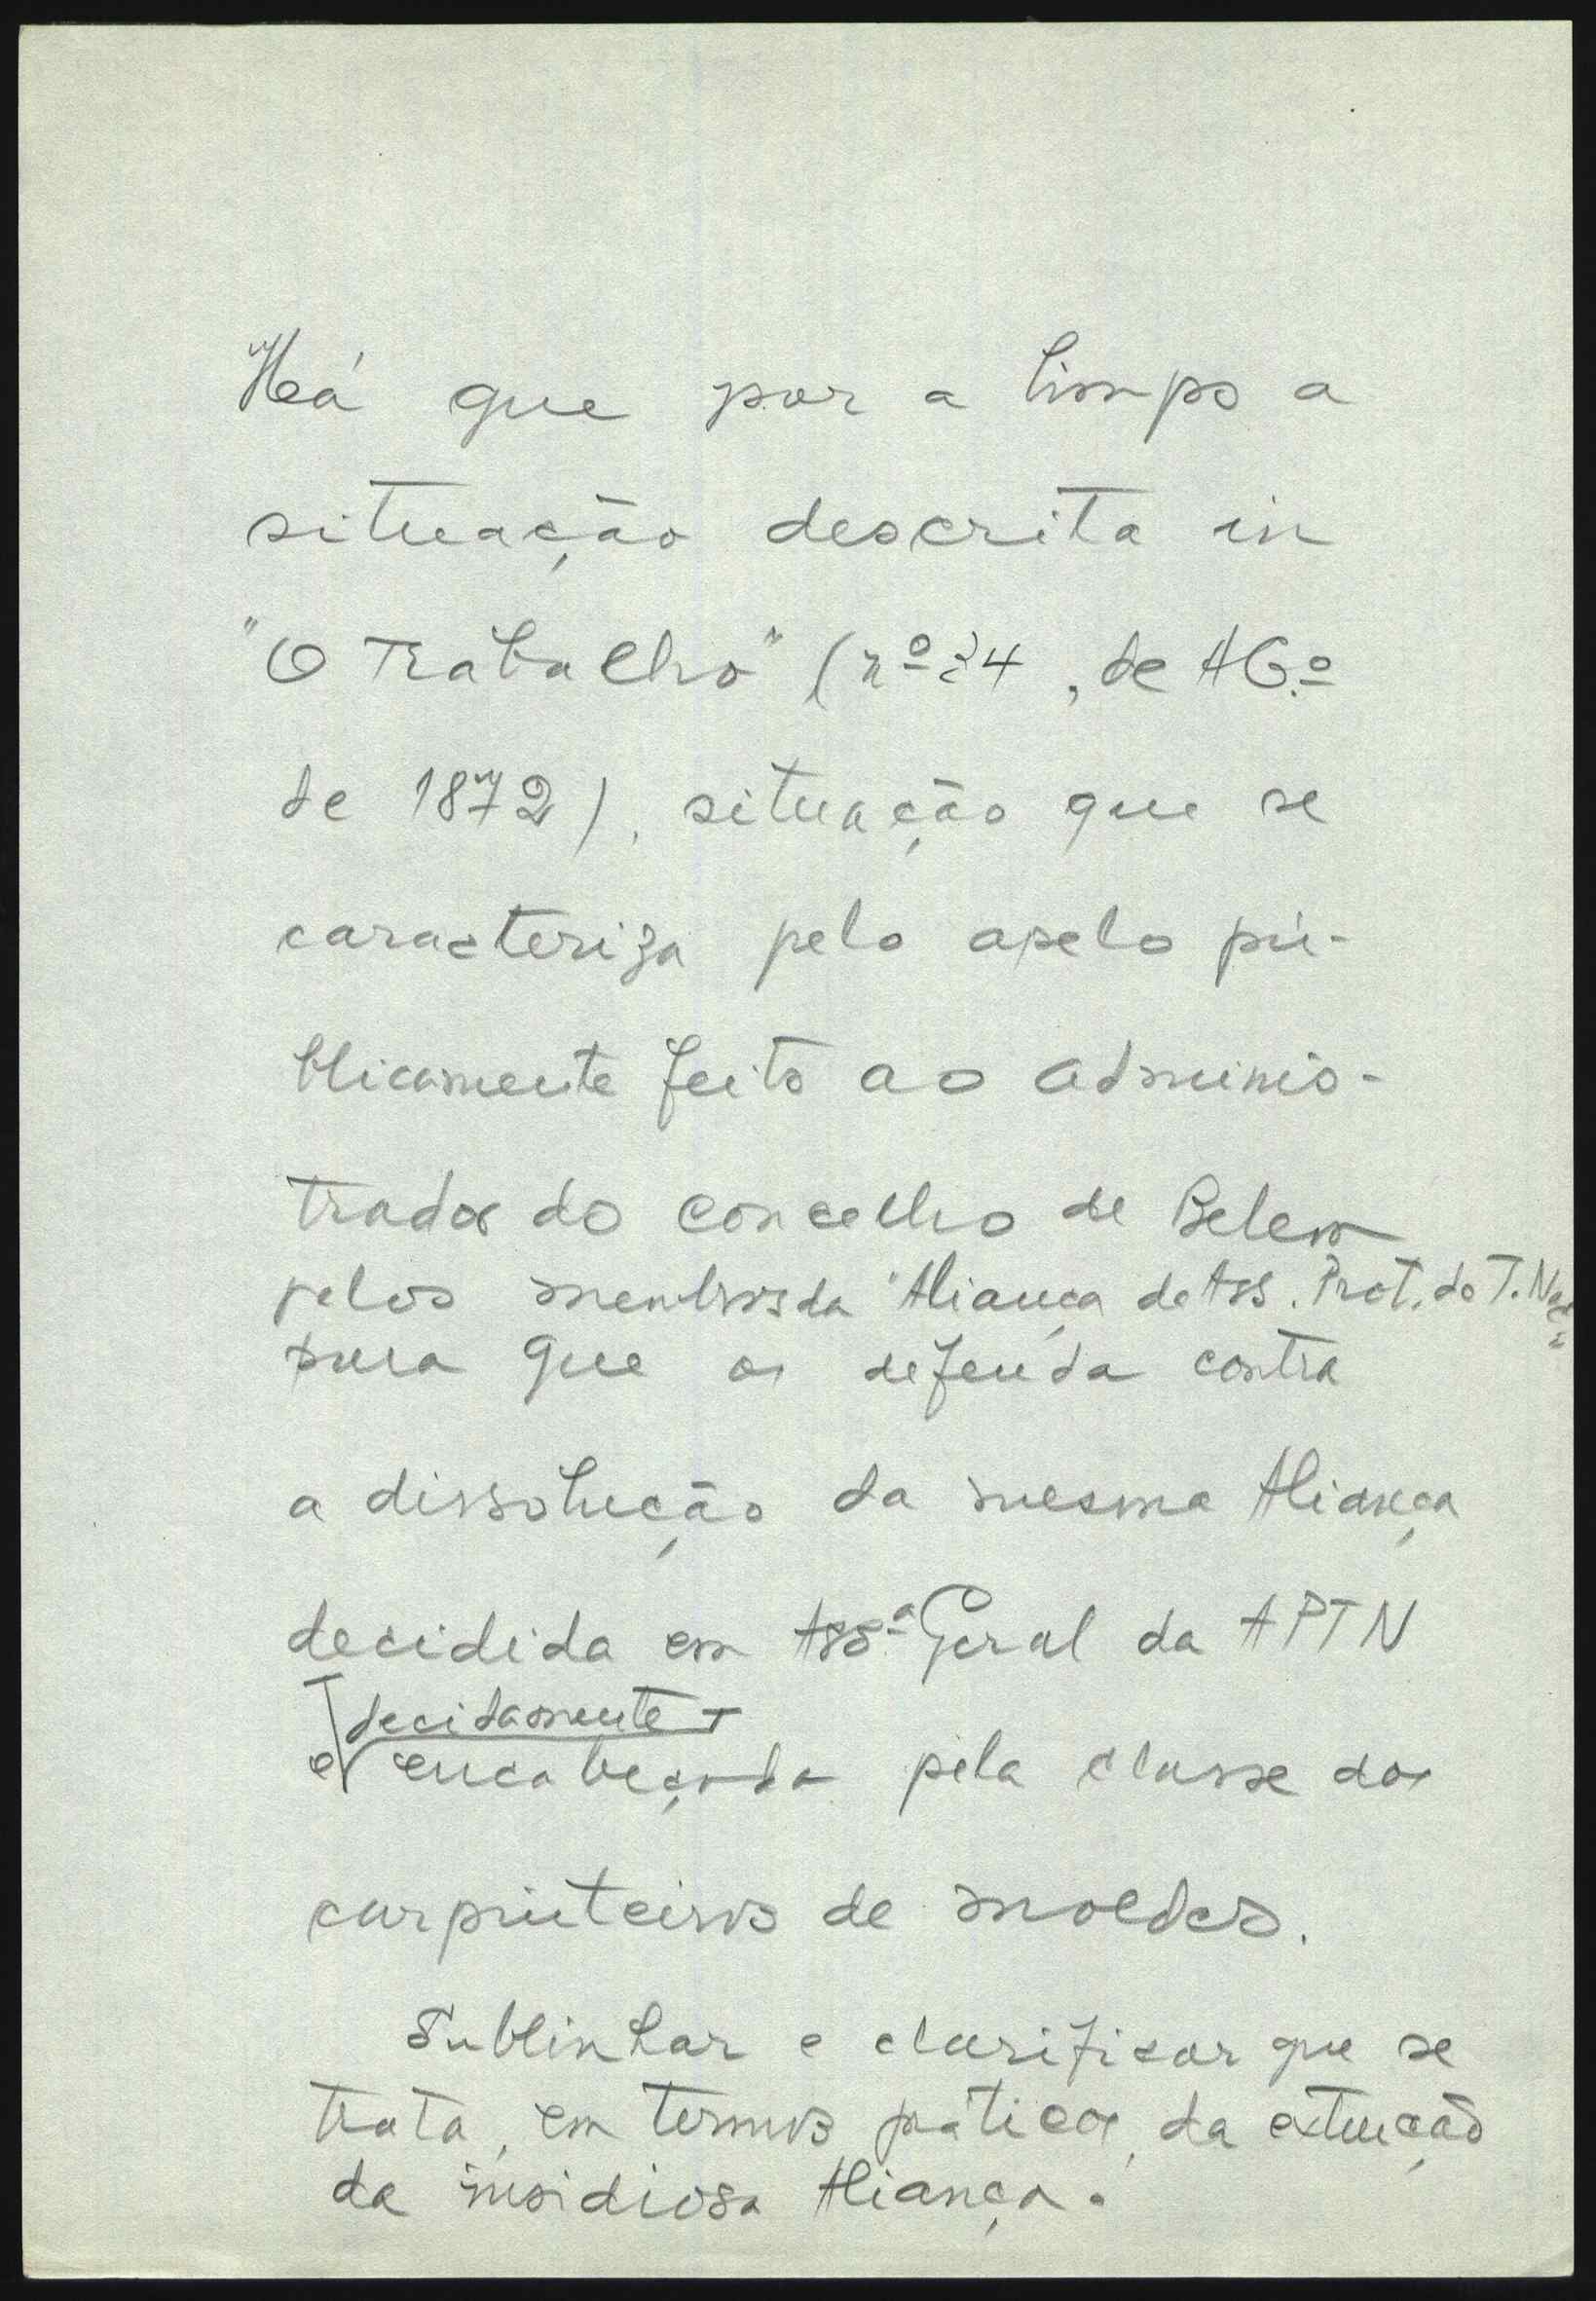 Há que por a limpo a
situação descrita in
"O Trabalho" (nº 24, de AGº
de 1872), situação que se
caracteriza pelo apelo pú-
blicamente feito ao adminis-
trador do concelho de Belem
pelos membros da "Aliança de Ass. Prot. do T. Nac
para que os defenda contra
a dissolução da mesma Aliança
decidida em Assª Geral da APTN
decidamente
e encabeçada pela classe dos
carpinteiros de moldes.
Sublinhar e clarificar que se
trata, em termos práticos, da extinção
da insidiosa Aliança.